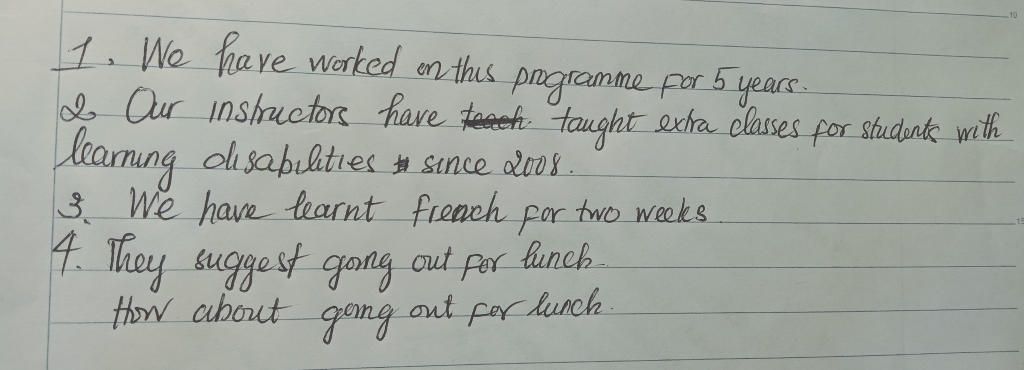 1. We have worked on this programme for 5 years.
2 Our instructors have teach taught extra classes for students with
learning disabilities since 2008.
3. We have learnt french for two weeks
4. They suggest going out for lunch
How about going out for lunch.